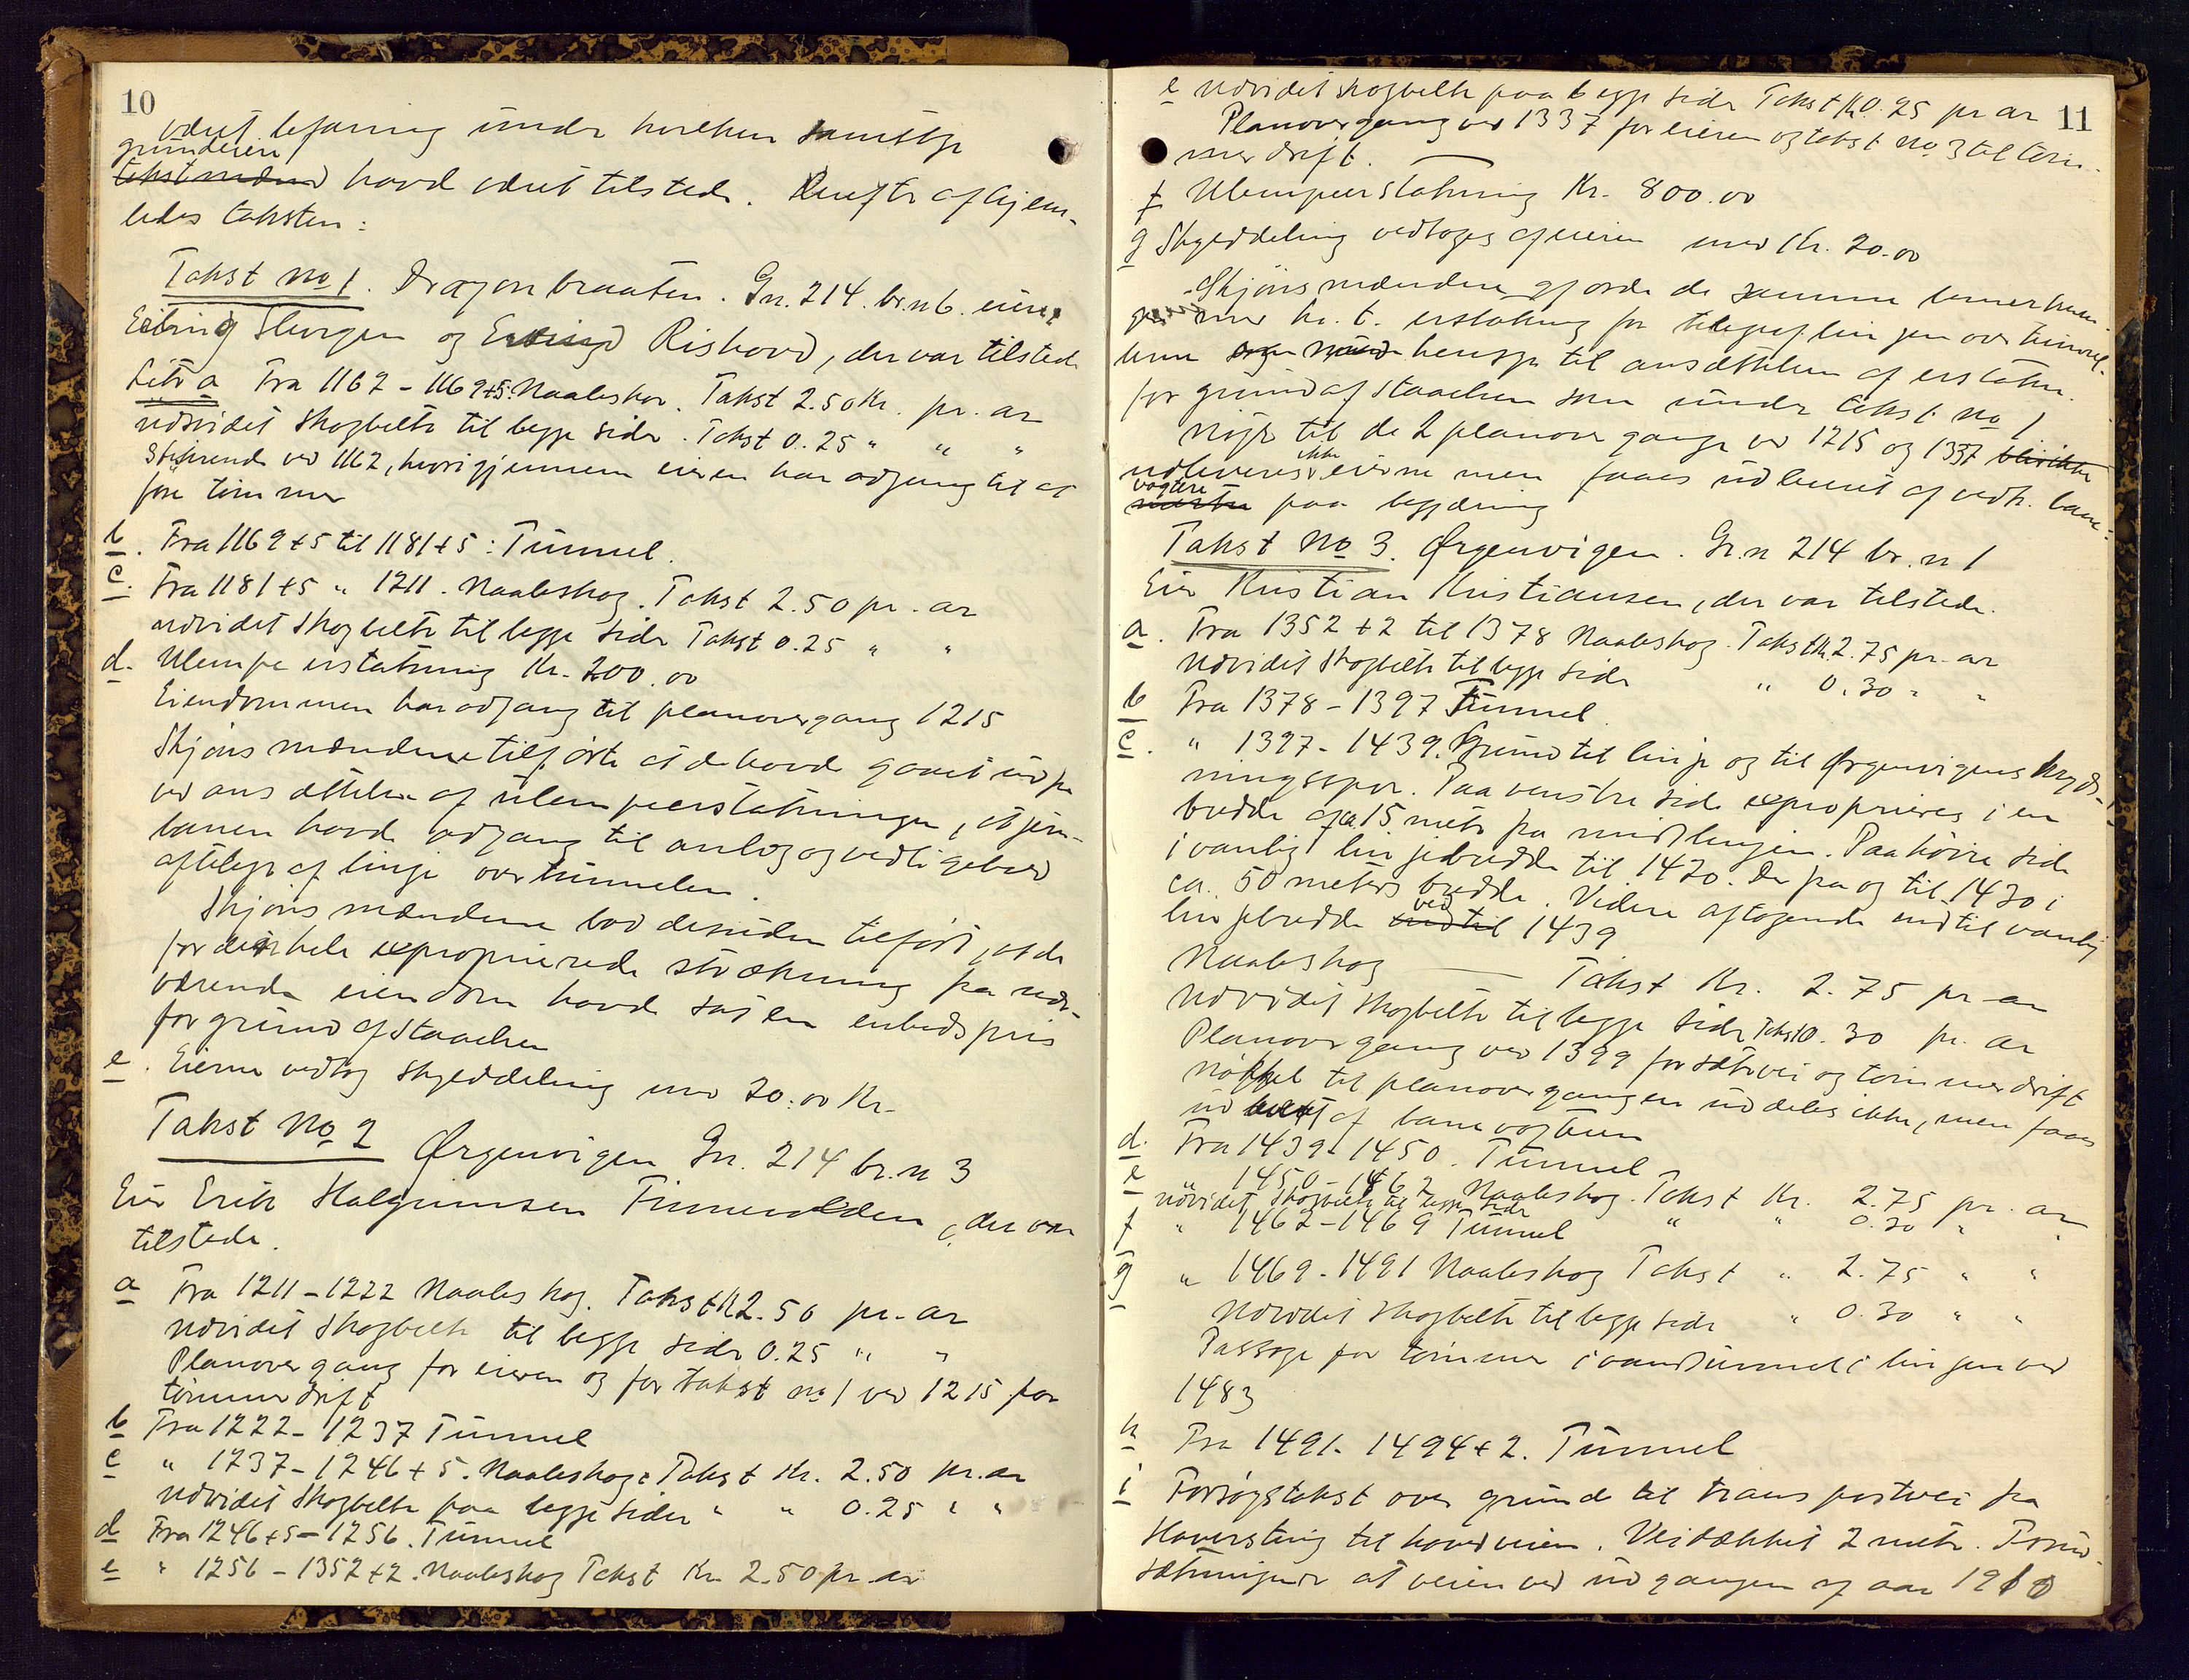 10
været befaring under hvilken samtlige
grundeiere
takstmænd havde været tilstede. Derefter afhjem-
ledes taksten:
Takst no 1. Dragonbraaten. Gn. 214. br.n 6. eiere
Elling Skorgen og Rishovd, der var tilstede
Litr a Fra 1162 - 1169+5. Naaleskov. Takst 2.50 Kr. pr. ar
udvidet skogbelte til begge sider. Takst 0.25 " " "
Stikrende ved 1162, hvorigjennem eieren har adgang til at
føre tømmer
b. Fra 1169+5 til 1181+5: Tunnel.
c. Fra 1181+5 " 1211. Naaleskog. Takst 2.50 pr. ar
udvidet skogbelte til begge sider Takst 0.25 " "
d. Ulempeerstatning Kr. 200.00
Eiendommen har adgang til planovergang 1215
Skjønsmændene tilførte at de havde gaaet ud fra
ved ansættelse af ulempeerstatningen, at jern-
banen havde adgang til anlæg og vedligehold
aftelegraf linje over tunnelen.
Skjønsmændene bad desuden tilført, at de
for den hele exproprierede strækning fra nær-
værende eiendom havde sat en enhedspris
for grund af Staaelven
e. Eierne vedtog skylddeling med 20.00 Kr.
Takst No 2 Ørgenvigen Gn. 214 br.n 3
Eier Erik Halgrimsen Finnevolden, der var
tilstede.
a Fra 1211 - 1222 Naaleskog. Takst Kr 2.50 pr. ar
udvidet skogbelte til begge sider 0.25 " "
Planovergang for eieren og for takst no 1 ved 1215 for
tømmerdrift
b Fra 1222 - 1237 Tunnel
c " 1237 - 1246+5. Naaleskog. Takst Kr. 2.50 pr. ar
udvidet skogbelte paa begge sider " " 0.25 " "
d Fra 1246+5 - 1256. Tunnel
e " 1256 - 1352+2. Naaleskog Takst Kr 2.50 pr ar
11
e udvidet skogbelte paa begge sider Takst Kr 0.25 pr ar
Planovergang ved 1337 for eieren og takst no 3 til tøm-
merdrift.
f Ulempeerstatning Kr. 800.00
g Skylddeling vedtoges af eieren med Kr. 20.00
Skjønsmændene gjorde de samme bemerknin-
ger med h. t. erstatning for telegraflinjen over tunnel-
lerne og med hensyn til ansættelsen af erstatn.
for grund af Staaelven som under takst no 1
Nøgle til de 2 planovergange ved 1215 og 1337 blir ikke
udleveres ikke eierne men faaes udlaant af vedk. bane-
vogtere
paa begjæring
Takst No 3. Ørgenvigen. Gr.n 214 br.n 1
Eier Kristian Kristiansen, der var tilstede.
a. Fra 1352+2 til 1378 Naaleskog. Takst Kr. 2.75 pr. ar
Udvidet skogbelte til begge sider " 0.30 " "
b Fra 1378 - 1397 Tunnel.
c. " 1397 - 1439. Grund til linje og til Ørgenvigens kryds-
ningsspor. Paa venstre side exproprieres i en
bredde af ca. 15 meter fra midtlinjen. Paa høire side
i vanlig linjebredde til 1420. Derfra og til 1430 i
ca. 50 meters bredde. Videre aftagende indtil vanlig
linjebredde indtil ved 1439
Naaleskog — Takst Kr. 2.75 pr ar
Udvidet skogbelte til begge sider Takst 0.30 pr. ar
Planovergang ved 1399 for sætervei og tømmerdrift
Nøkkel til planovergangen uddeles ikke, men faaes
udlaant af banevogteren
d. Fra 1439 - 1450. Tunnel
e " 1450 - 1462 Naaleskog. Takst Kr. 2.75 pr. ar
udvidet skogbelte til begge sider " " 0.30 " "
f " 1462 - 1469 Tunnel
g " 1469 - 1491 Naaleskog Takst " 2.75 " "
Udvidet skogbelte til begge sider " 0.30 " "
Passage for tømmer i vandtunnel i linjen ved
1483
h Fra 1491 - 1494+2. Tunnel
i Forsøgstakst over grund til transportvei fra
Haversting til hovedveien. Veidækket 2 meter. Forud-
sætningen er at veien ved udgangen af aar 1910